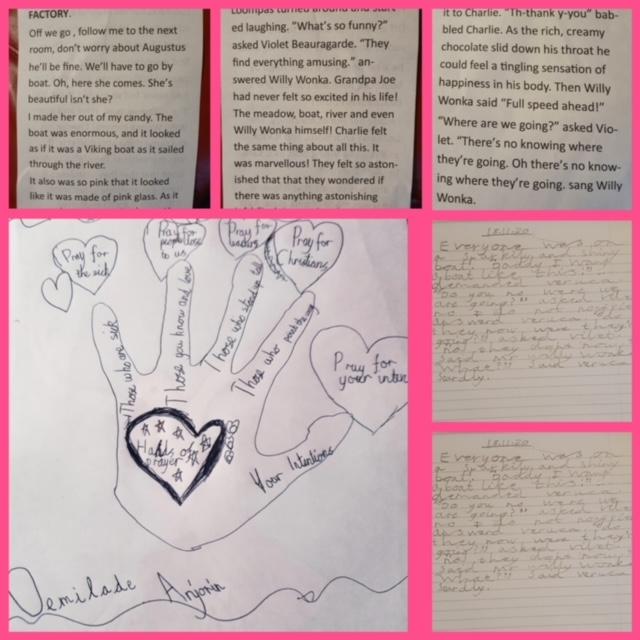 FACTORY.
Off we go , follow me to the next
room, don't worry about Augustus
he'll be fine. We'll have to go by
boat. Oh, here she comes. She's
beautiful isn't she?
I made her out of my candy. The
boat was enormous, and it looked
as if it was a Viking boat as it sailed
through the river.
It also was so pink that it looked
like it was made of pink glass. As it
ed laughing. "What's so funny?"
asked Violet Beauragarde. "They
find everything amusing." an-
swered Willy Wonka. Grandpa Joe
had never felt so excited in his life!
The meadow, boat, river and even
Willy Wonka himself! Charlie felt
the same thing about all this. It
was marvellous! They felt so aston-
ished that that they wondered if
there was anything astonishing
it to Charlie. "Th-thank y-you" bab-
bled Charlie. As the rich, creamy
chocolate slid down his throat he
could feel a tingling sensation of
happiness in his body. Then Willy
Wonka said "Full speed ahead!"
"Where are we going?" asked Vio-
let. "There's no knowing where
they're going. Oh there's no know-
ing where they're going. sang Willy
Wonka.
Pray for
the sick
Pray for
to us
Pray for
leaders
Pray for
Christians
Pray for
your
Those who are sick
Those you know and love
Those who
Those who
Your Intentions
Hands of
prayer
Demilade Anjorin
18.11.20
Everyone was on
a and shiny
boat.
boat like this!"
demanded veruca
"Do you no were we
are going?" asked
no I do not
they now were they
asked
no! they dont now
said Mr Willy Wonka
"What?!" Said veruca
18.11.20
Everyone was on
a and shiny
boat.
boat like this!"
demanded veruca
"Do you no were we
are going?" asked
no I do not
they now were they
asked
no! they dont now
said Mr Willy Wonka
"What?!" Said veruca